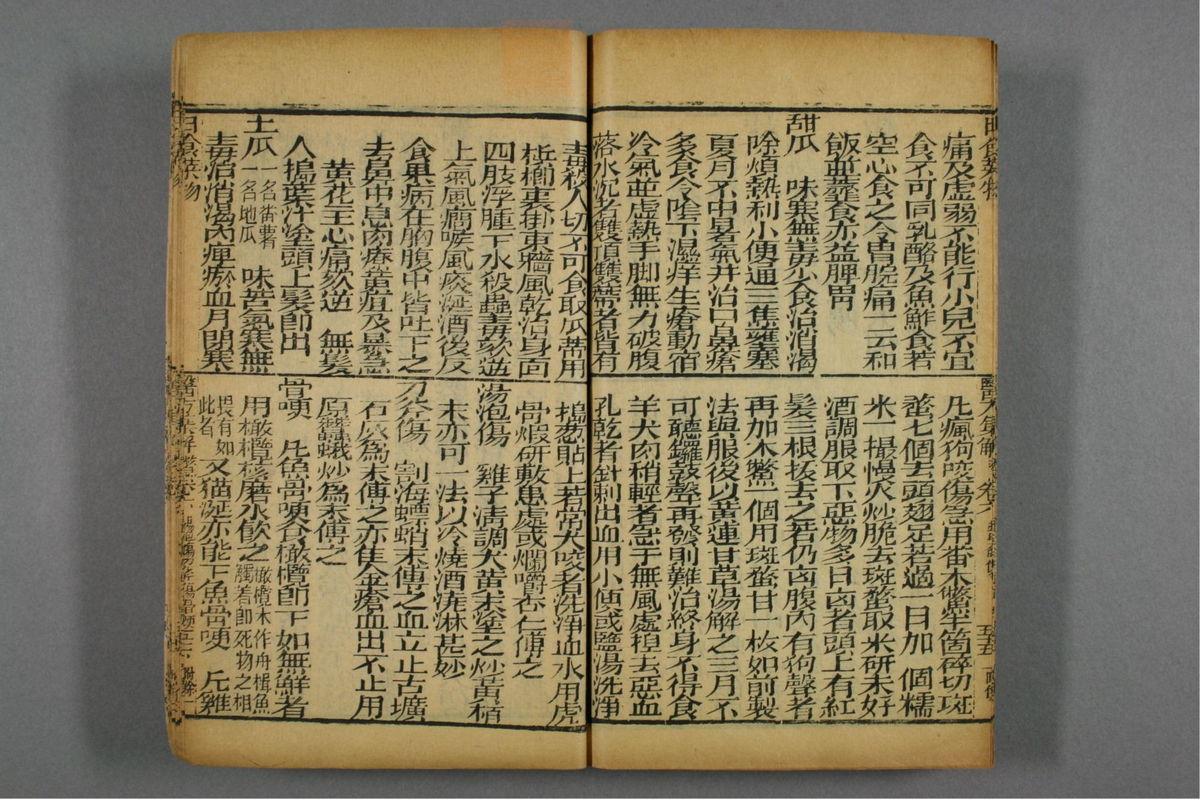 痛及虛弱不能行小兒不宜
食不可同乳酪及魚鮓食若
空心食之令胃脘痛一云和
飯並蒸食亦益脾胃
甜瓜　味寒無毒少食治消渴
除煩熱利小便通三焦壅塞
夏月不中暑氣并治口鼻瘡
多食令陰下濕痒生瘡動宿
冷氣並虛熱手脚無力破腹
落水沉者雙頂雙蒂者皆有
毒殺人切不可食取瓜蒂用
裹掛東牆風乾治身面
四肢浮腫下水殺蟲毒欬逆
上氣風癎喉風痰涎酒後反
食果病在胸腹中皆吐下之
去鼻中息肉療黃疸及暴急
黃花主心痛欬逆　無髮
人搗葉汁塗頭上髮卽出
土瓜一名番薯一名地瓜　味苦氣寒無
毒治消渴內痺瘀血月閉寒
日食菜物
凡瘋狗咬傷急用番木鱉半箇碎切斑
蝥七個去頭翅足若過一日加　個糯
米一撮慢火炒脆去斑蝥取米研末好
酒調服取下惡物多日凶者頭上有紅
髮三根拔去之若仍凶腹內有狗聲者
再加木鱉一個用斑蝥廿一枚如前製
法與服後以黃連甘草湯解之三月不
可聽鑼鼓聲再發則難治終身不得食
羊犬肉稍輕者急于無風處捏去惡血
孔乾者針刺出血用小便或鹽湯洗淨
搗葱貼上若常犬咬者洗淨血水用虎
骨煅研敷患處或爛嚼杏仁傅之
湯泡傷　雞子清調大黃末塗之炒黃栢
末亦可一法以冷燒酒淋淋甚妙
刀斧傷　割海螵蛸末傅之血立止古壙
石灰爲末傅之亦焦金瘡血出不止用
原蠶蛾炒爲末傅之
骨哽　凡魚骨哽食橄欖卽下如無鮮者
用橄欖核磨水飲之橄欖木作舟楫魚觸着卽死物之相畏有如此者　又猫涎亦能下魚骨哽　凡雞